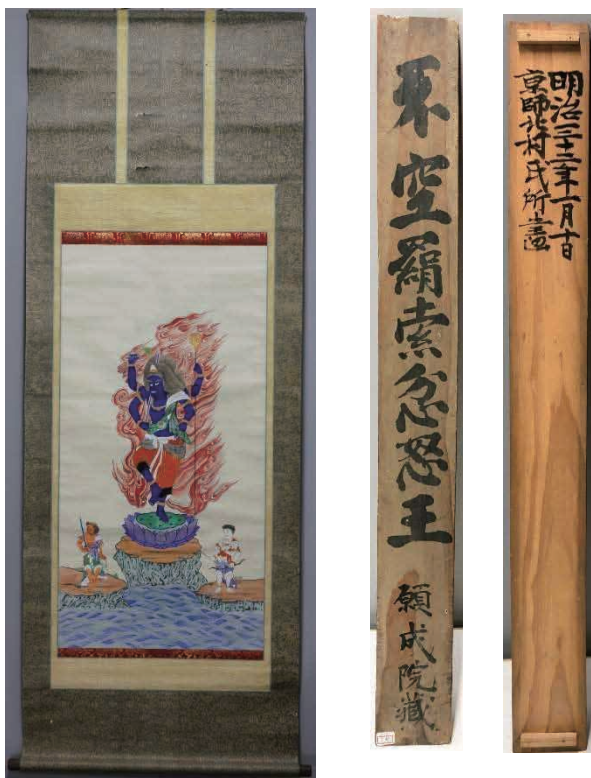 不空羂索忿怒王
願成院藏
明治二十二年一月十日
京師北村氏所畫